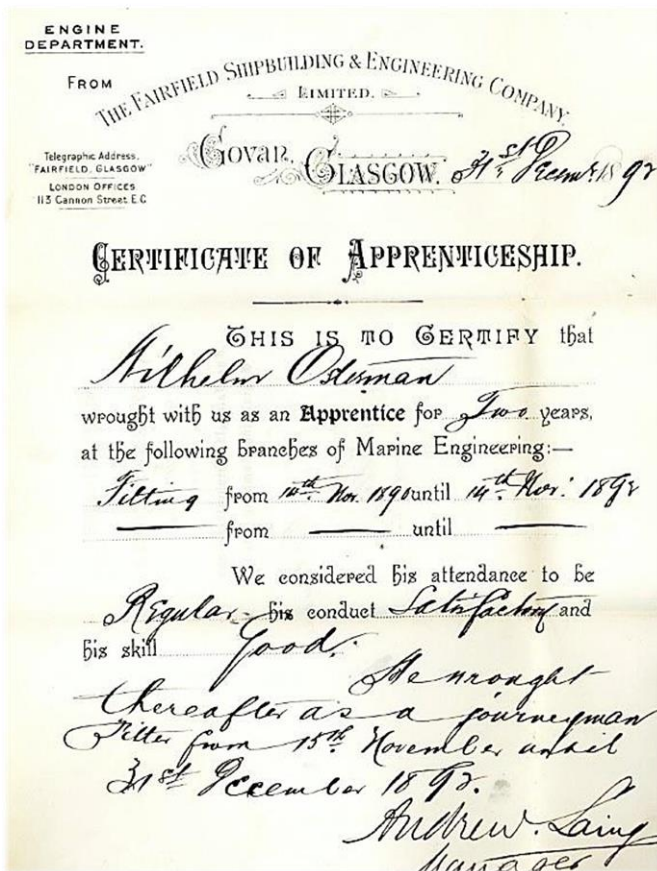 ENGINE
DEPARTMENT.
FROM
THE FAIRFIELD SHIPBUILDING & ENGINEERING COMPANY,
LIMITED.
Telegraphic Address,
"FAIRFIELD, GLASGOW"
LONDON OFFICES
113 Cannon Street. E.C
Govan,
GLASGOW, 31st Decemr. 1892
CERTIFICATE OF APPRENTICESHIP.
THIS IS TO CERTIFY that
Wilhelm Osterman
wrought with us as an Apprentice for Two years,
at the following branches of Marine Engineering:—
Fitting from 14th Nov. 1890 until 14th Nov. 1892
from until
We considered his attendance to be
Regular his conduct Satisfactory and
his skill Good.
He wrought
thereafter as a journeyman
Fitter from 15th November until
31st December 1892.
Andrew. Laing
Manager